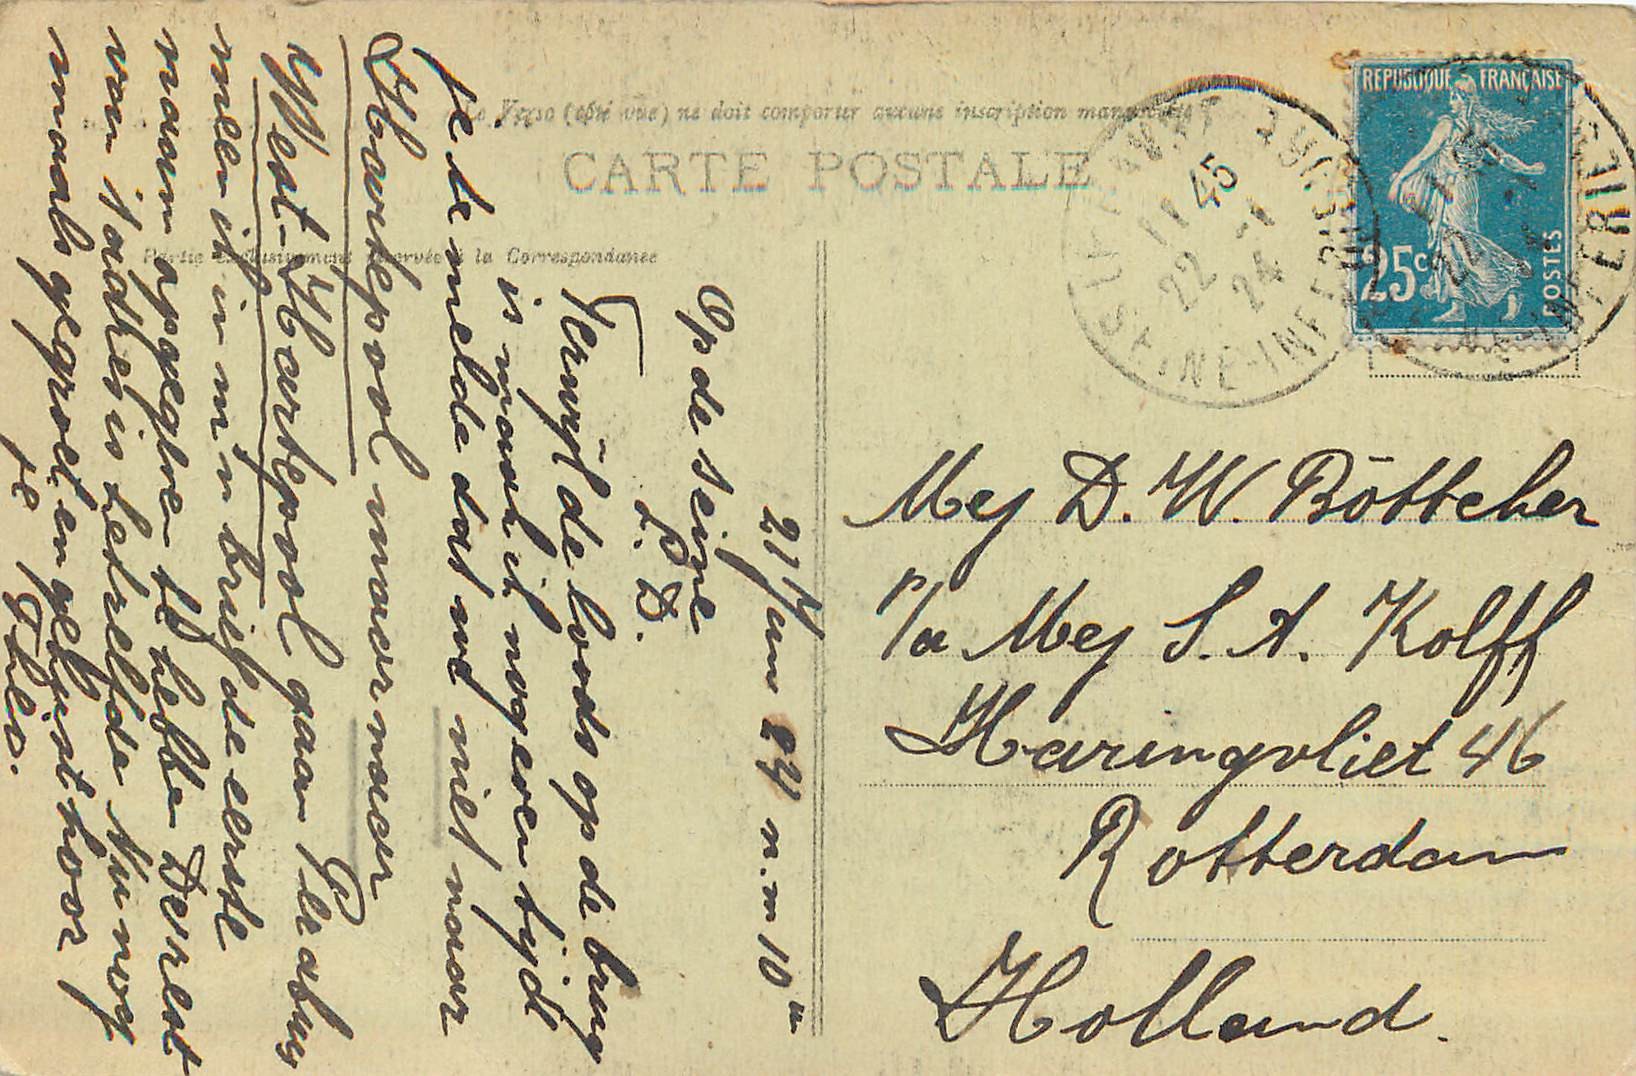 Le Verso (côté vue) ne doit comporter aucune inscription manuscrite
CARTE POSTALE
Partie exclusivement réservée à la Correspondance
REPUBLIQUE FRANÇAISE
25c
POSTES
11 45
22 -1
24
SEINE-INFERIEURE
21/Jan 24 n.m 10 u
Op de Seine
L. D.
Terwijl de loods op de brug
is maak ik nog even tijd
je te melden dat we niet naar
Hartlepool maar naar
West-Hartlepool gaan
wil ik in m'n brief de eerste
naam opgegeven te hebben De rest
van 't adres is hetzelfde Nu nog
maals gegroet en gekust hoor
je Theo.
Mej D. W. Böttcher
p/a Mej S. A. Kolff
Haringvliet 46
Rotterdam
Holland.